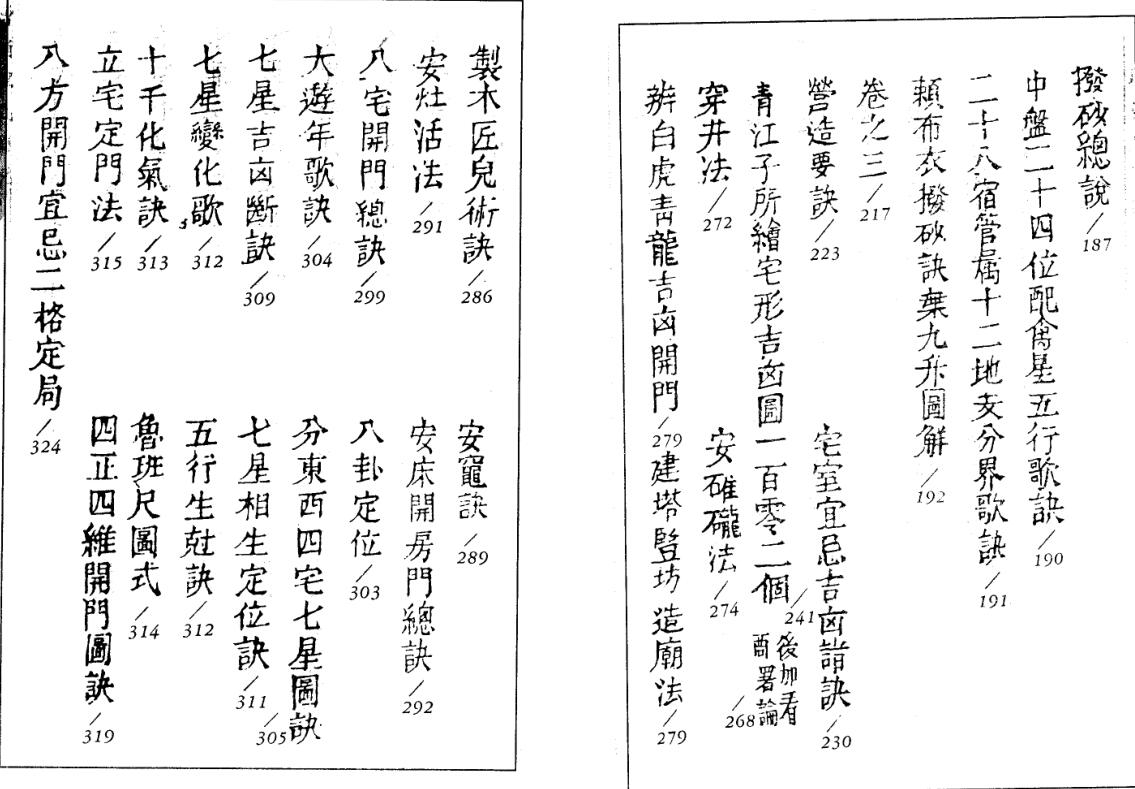 撥砂總說/187
中盤二十四位配禽星五行歌訣/190
二十八宿管属十二地支分界歌訣/191
賴布衣撥砂訣棄九升圖解/192
卷之三/217
營造要訣/223
宅室宜忌吉凶諸訣/230
青江子所繪宅形吉凶圖一百零二個/241
後加看
酉署論/268
穿井法/272
安碓礲法/274
辨白虎青龍吉凶開門/279
建塔竪坊造廟法/279
製木匠兒術訣/286
安竈訣/289
安灶活法/291
安床開房門總訣/292
八宅開門總訣/299
八卦定位/303
大遊年歌訣/304
分東西四宅七星圖訣/305
七星吉凶斷訣/309
七星相生定位訣/311
七星變化歌/312
五行生尅訣/312
十干化氣訣/313
魯班尺圖式/314
立宅定門法/315
四正四維開門圖訣/319
八方開門宜忌二格定局/324